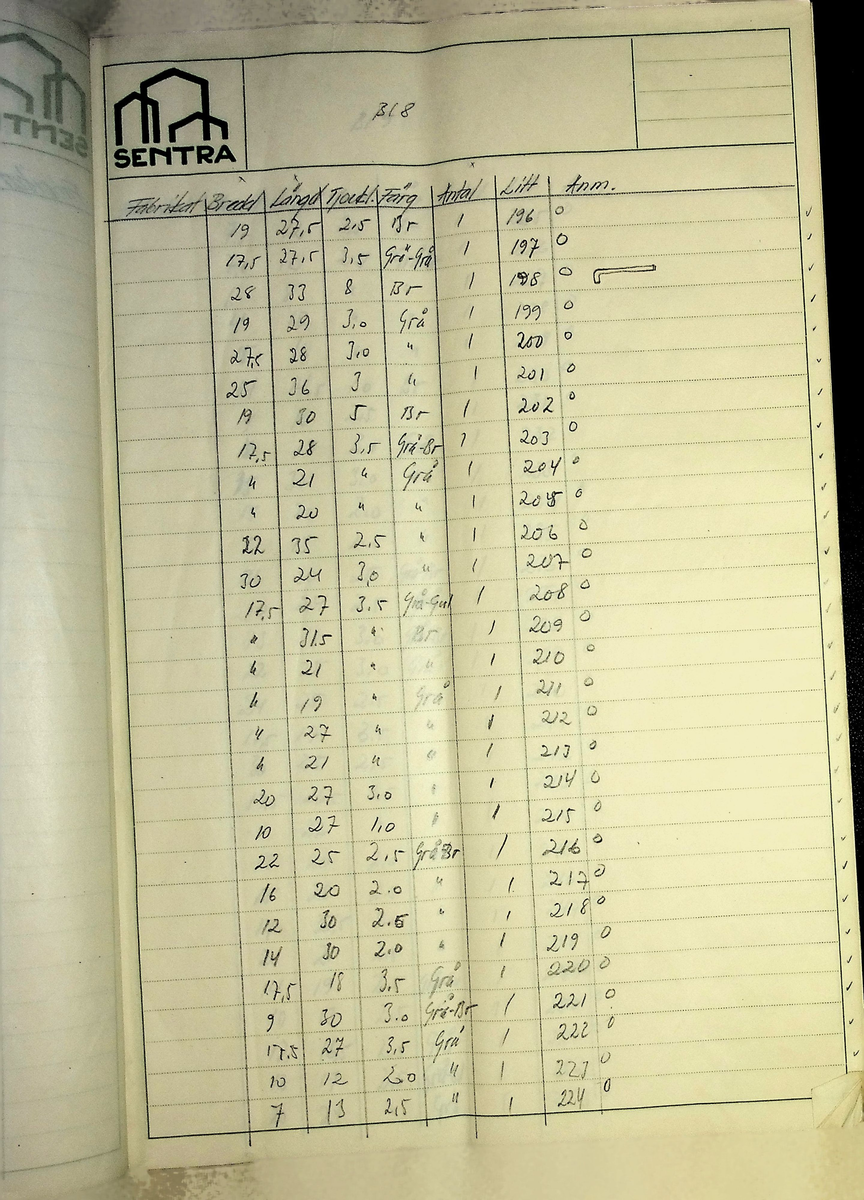 SENTRA
Bl 8
Fabrikat Bredd Längd Tjockl. Färg Antal Litt Anm.
19 27,5 2,5 Br 1 196 o
17,5 27,5 3,5 Grå-Grå 1 197 o
28 33 8 Br 1 198 o
19 29 3,0 Grå 1 199 o
27,5 28 3,0 " 1 200 o
25 36 3 " 1 201 o
19 30 5 Br 1 202 o
17,5 28 3,5 Grå-Br 1 203 o
" 21 " Grå 1 204 o
" 20 " " 1 205 o
22 35 2,5 " 1 206 o
30 24 3,0 " 1 207 o
17,5 27 3,5 Grå-Gul 1 208 o
" 31,5 " Br 1 209 o
" 21 " " 1 210 o
" 19 " Grå 1 211 o
" 27 " " 1 212 o
" 21 " " 1 213 o
20 27 3,0 " 1 214 o
10 27 1,0 " 1 215 o
22 25 2,5 Grå-Br 1 216 o
16 20 2.0 " 1 217 o
12 30 2.5 " 1 218 o
14 30 2.0 " 1 219 o
17,5 18 3,5 Grå 1 220 o
9 30 3.0 Grå-Br 1 221 o
17.5 27 3,5 Grå 1 222 o
10 12 2.0 " 1 223 o
7 13 2,5 " 1 224 o